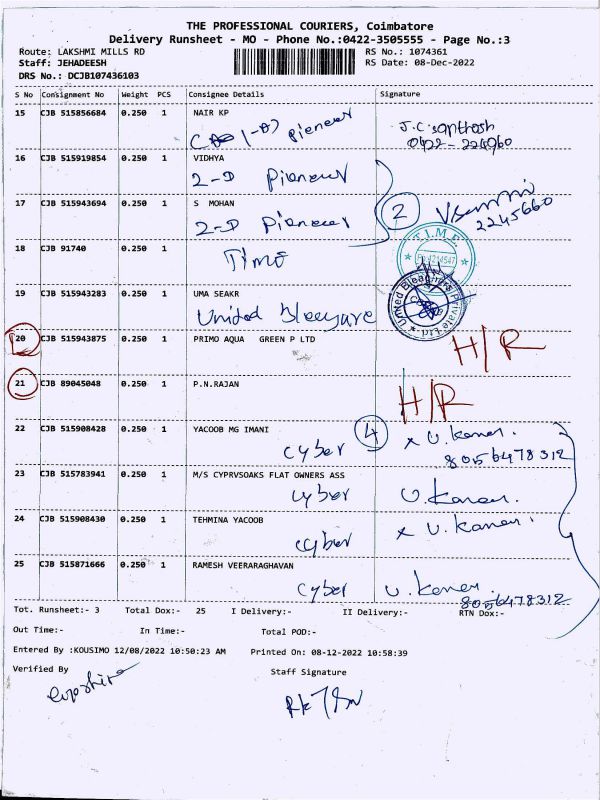 THE PROFESSIONAL COURIERS, Coimbatore
Delivery Runsheet - MO - Phone No.:0422-3505555 - Page No.:3
Route: LAKSHMI MILLS RD RS No.: 1074361
Staff: JEHADEESH RS Date: 08-Dec-2022
DRS No.: DCJB107436103
S No Consignment No Weight PCS Consignee Details Signature
15 CJB 515856684 0.250 1 NAIR KP
pioneer J.C. Santhosh
0422-224960
16 CJB 515919854 0.250 1 VIDHYA
2-D Pioneer
17 CJB 515943694 0.250 1 S MOHAN
2-D Pioneer 2 2245660
18 CJB 91740 0.250 1 Time T.I.M.E.
19 CJB 515943283 0.250 1 UMA SEAKR
United Bleegare United Bleachers Private Ltd
20 CJB 515943875 0.250 1 PRIMO AQUA GREEN P LTD H/R
21 CJB 89045048 0.250 1 P.N.RAJAN H/R
22 CJB 515908428 0.250 1 YACOOB MG IMANI 4 x U. Kanan.
cyber 8056478312
23 CJB 515783941 0.250 1 M/S CYPRVSOAKS FLAT OWNERS ASS
cyber U. Kanan.
24 CJB 515908430 0.250 1 TEHMINA YACOOB x U. Kanan.
cyber
25 CJB 515871666 0.250 1 RAMESH VEERARAGHAVAN
cyber U. Kanan
8056478312
Tot. Runsheet:- 3 Total Dox:- 25 I Delivery:- II Delivery:- RTN Dox:-
Out Time:- In Time:- Total POD:-
Entered By :KOUSIMO 12/08/2022 10:50:23 AM Printed On: 08-12-2022 10:58:39
Verified By Staff Signature